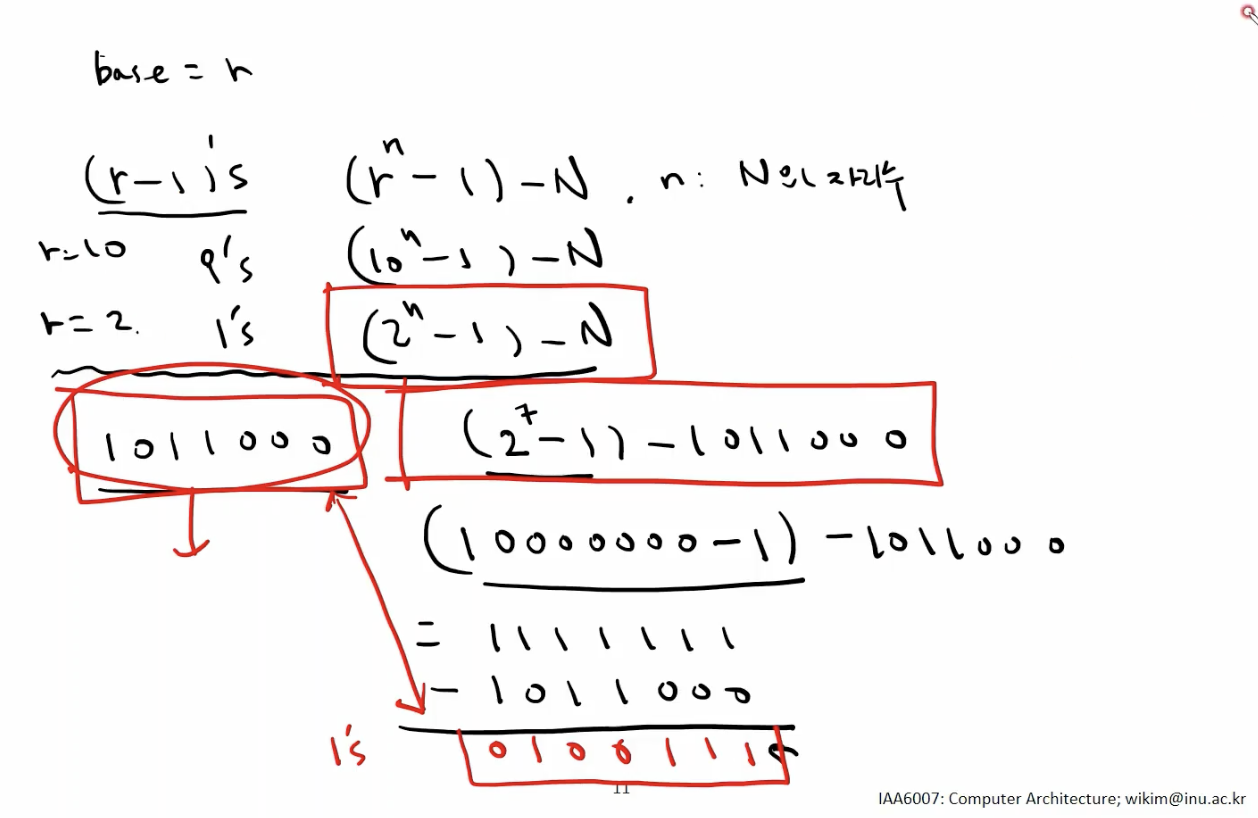 base = r
(r-1)'s (rⁿ - 1) - N . n: N의 자리수
r=10 9's (10ⁿ-1) - N
r=2. 1's (2ⁿ-1) - N
1011000 (2⁷-1) - 1011000
(10000000-1) - 1011000
= 1111111
- 1011000
1's 0100111
11
IAA6007: Computer Architecture; wikim@inu.ac.kr